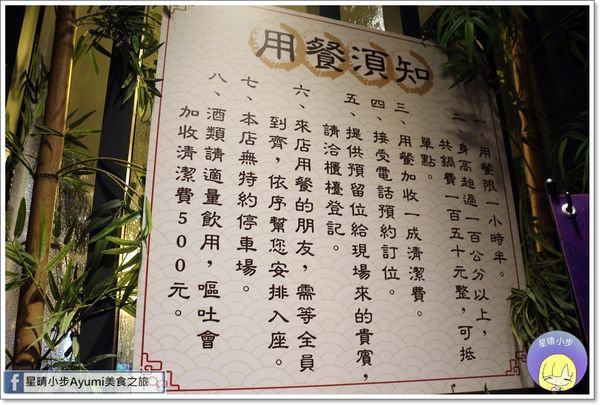 用餐須知
一、用餐限一小時半。
二、身高超過一百公分以上，
共鍋費一百五十元整，可抵
單點。
三、用餐加收一成清潔費。
四、接受電話預約訂位。
五、提供預留位給現場來的貴賓，
請洽櫃檯登記。
六、來店用餐的朋友，需等全員
到齊，依序幫您安排入座。
七、本店無特約停車場。
八、酒類請適量飲用，嘔吐會
加收清潔費500元。
星晴小步Ayumi美食之旅
星晴小步